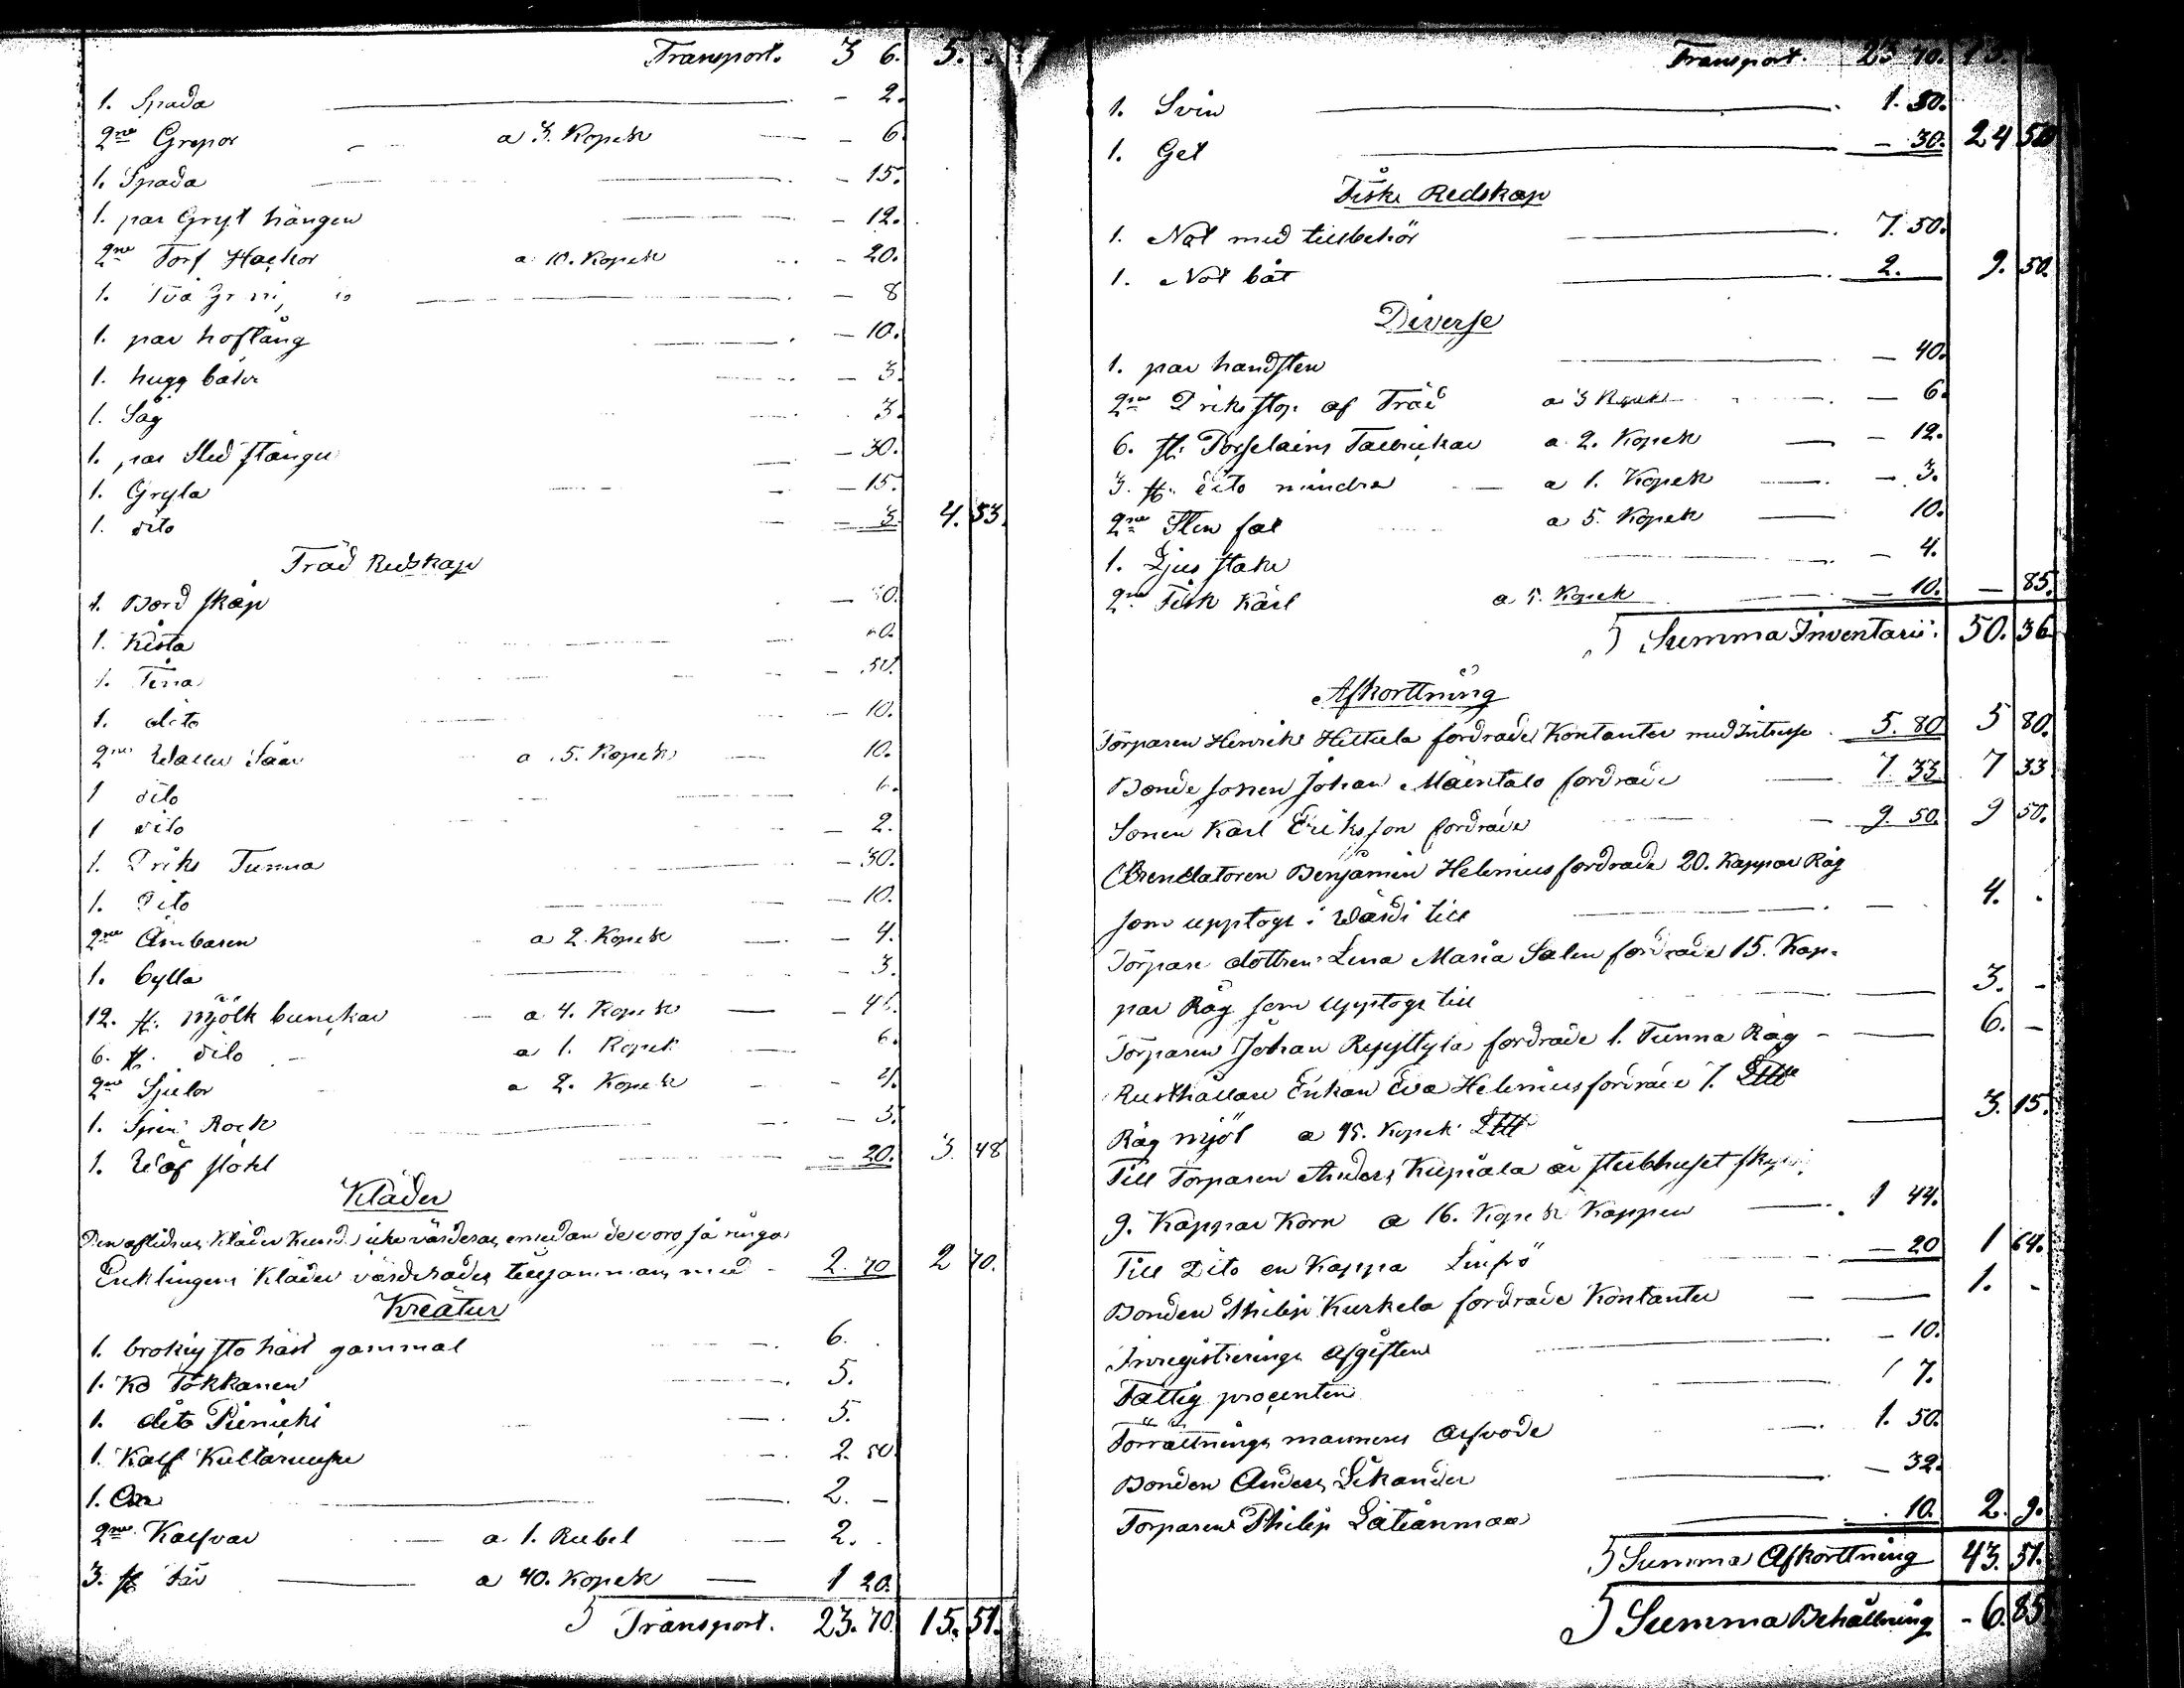 Transport. 3 6. 5.
1. Spada — 2.
2ne Grepor a 3. Kopek — 6.
1. Spada — 15.
1. par Gryt hängen — 12.
2ne Torf Hackor a 10. Kopek — 20.
1. — 8
1. par hoftång — 10.
1. hugg — 3.
1. Såg 3.
1. par Sled stånger — 30.
1. Gryta — 15.
1. dito — 3. 4. 53.
Träd Redskap
1. Bord skåp
1. Kista
1. Tina — 50.
1. dito — 10.
2ne Watten Såar a 5. Kopek 10.
1 dito 6.
1 dito — 2.
1. Driks Tunna — 30.
1. Dito — 10.
2ne Ämbaren a 2. Kopek — 4.
1. bytta — 3.
12. st. mjölk bunckar a 4. Kopek —
6. st. dito a 1. Kopek 6.
2ne Sjelor a 2. Kopek — 4.
1. Spin Rock — 3.
1. Wäf stohl — 20. 3. 48
Kläder
Den aflidnes Kläder Kund icke värderas emedan de voro så ringa
Encklingens Kläder värderades tillsammans med - 2. 70 2 70.
Kreatur
1. brokig sto häst gammal 6.
1. Ko Tökkanen 5.
1. dito Pienicki 5.
1. Kalf 2. 50
1. Oxe 2. —
2ne Kalfvar a 1. Rubel — 2.
3. st får a 40. Kopek — 1 20.
Transport. 23. 70. 15. 51.
Transport. 23 70. 15.
1. Svin 1. 50.
1. Get — 30. 24 50
Fiske Redskap
1. Not med tillbehör 7. 50.
1. Not båt 2. 9. 50.
Diverse
1. par handsten — 40.
2ne Driks stop af Träd a 3 Kopek — 6.
6. st. Porselains Tallrickar a 2. Kopek — 12.
3. st. dito mindre a 1. Kopek — 3.
2ne Sten fat a 5. Kopek 10.
1. Ljus stake — 4.
2ne Fisk Kärl a 5. Kopek — 10. — 85.
Summa Inventarii. 50. 36
Afkorttning
Torparen Henrik Hettula fordrade Kontanter med Intresse 5. 80 5 80.
Bonde sonen Johan Mäentalo fordrade 7. 33 7 33
Sonen Karl Eriksson fordrade 9. 50. 9 50.
Arendatoren Benjamin Helenius fordrade 20. Kappar Råg
som upptogs i Wärdi till — 4. .
Torpare dottren Lena Maria Salen fordrade 15. Kap-
par Råg som upptogs till — 3. -
Torparen Johan fordrade 1. Tunna Råg — 6. —
Rusthållare Enkan Eva Helenius fordrade 7. L℔
Råg mjöl a 45. Kopek L℔ — 3. 15.
Till Torparen Anders Kupiala är sterbhuset skyldig
9. Kappar Korn a 16. Kopek Kappen 1 44.
Till Dito en Kappa Linfrö — 20 1 64.
Bonden Philip Kurkela fordrade Kontanter — 1. -
Inregistrerings Afgiften — 10.
Fattig procenten 7.
Förrättnings mannens Arfvode 1. 50.
Bonden Anders Sikander — 32.
Torparen Philip Latianmaa 10. 2. 9.
Summa Afkorttning 43. 51.
Summa Behållning - 6. 85